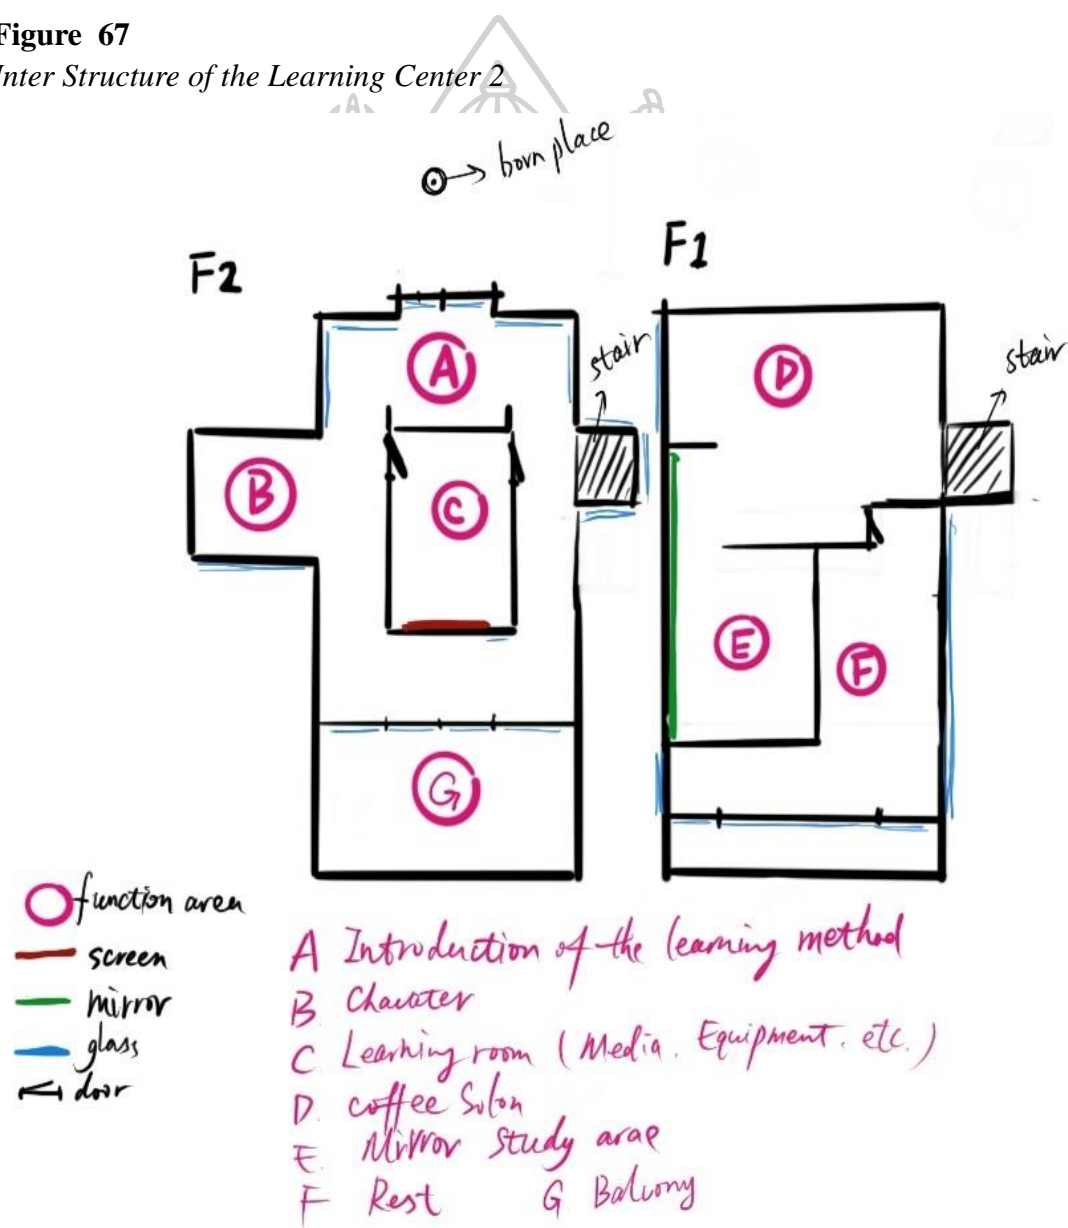 Figure 67
Inter Structure of the Learning Center 2
born place
F2
F1
A
stair
D
stair
B
C
E
F
G
function area
screen
mirror
glass
door
A Introduction of the learning method
B Charater
C Learning room (Media. Equipment. etc.)
D. coffee Solon
E Mirror study arae
F Rest G Balcony